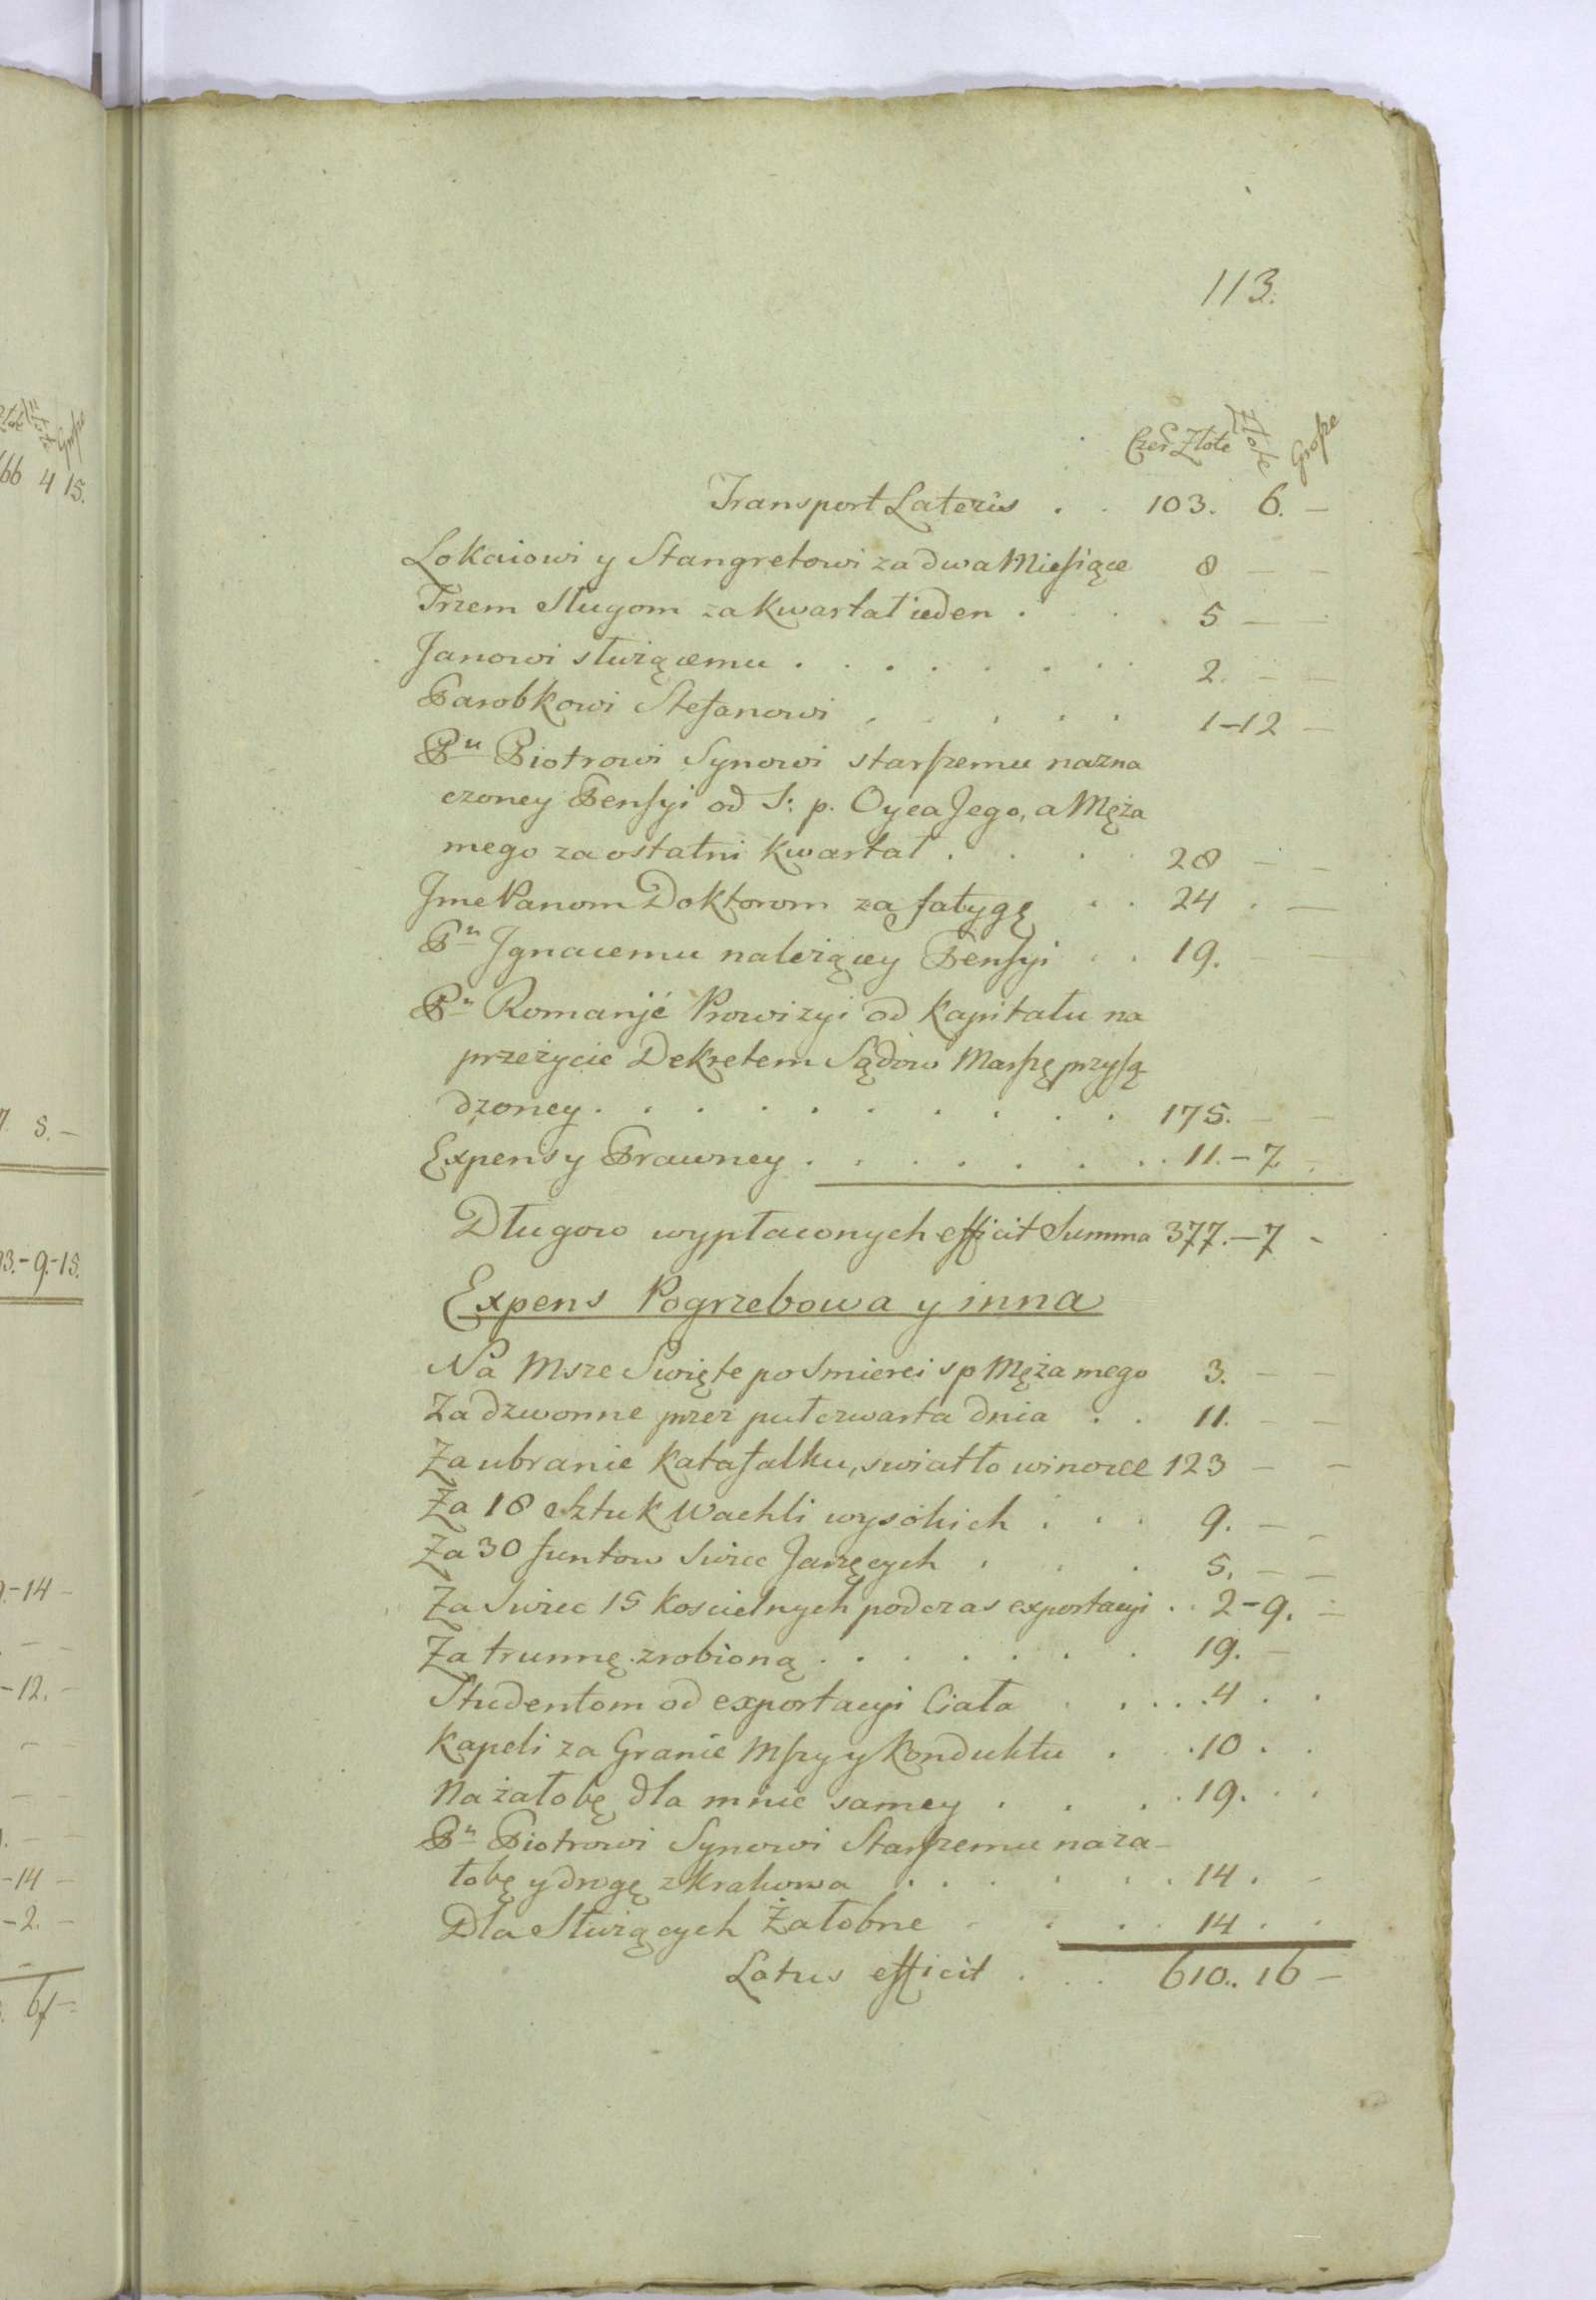 113.
Czer Złote Złote Grosze
Transport Lateris . . 103. 6. –
Lokaiowi y Stangretowi za dwa Miesiące 8 – –
Trzem Sługom za kwartał ieden . . . 5 –
Janowi służącemu . . . . . . . . 2. – –
Parobkowi Stefanowi . . . . . 1–12 –
Pu Piotrowi Synowi starszemu nazna
czoney Pensyi od S: p. Oyca Jego, a Męża
mego za ostatni kwartał . . . . 28 – –
Jme Panom Doktorom za fatygę . . 24 . –
Pu Jgnacemu należącey Pensyi . . 19. – –
Pn Romanjé Prowizyi od kapitału na
przeżycie Dekretem Sądow Marszę przysą
dzoney . . . . . . . . . 175. – –
Expensy Prawney . . . . . . . 11.–7 –
Długow wypłaconych efficit Summa 377.–7 –
Expens Pogrzebowa y inna
Na Msze Swięte po Smierci sp Męża mego 3. – –
Za dzwonne przez puł czwarta dnia . . 11. – –
Za ubranie katafalku, swiatło winowce 123 – –
Za 18 Sztuk Wachli wysokich . . . 9. – –
Za 30 funtow Swiec Jarzęcych . . . 5. – –
Za Swiec 15 koscielnych podczas exportacyi . . 2–9. –
Za trumnę zrobioną . . . . . . . 19. –
Studentom od exportacyi Ciała . . . . 4 . .
Kapeli za Granie Mszy y Konduktu . . 10 . .
Na żałobę dla mnie samey . . . . 19. . .
Pn Piotrowi Synowi Starszemu na ża–
łobę y drogę z Krakowa . . . . . . 14 . –
Dla Służących Żałobne . . . . 14 . .
Latus efficit . . . 610.. 16 –
złot Złote Grosze
166 4 15.
7. 5. –
93.–9.–15.
9.–14 –
–12. –
–14 –
–2. –
. 6 –